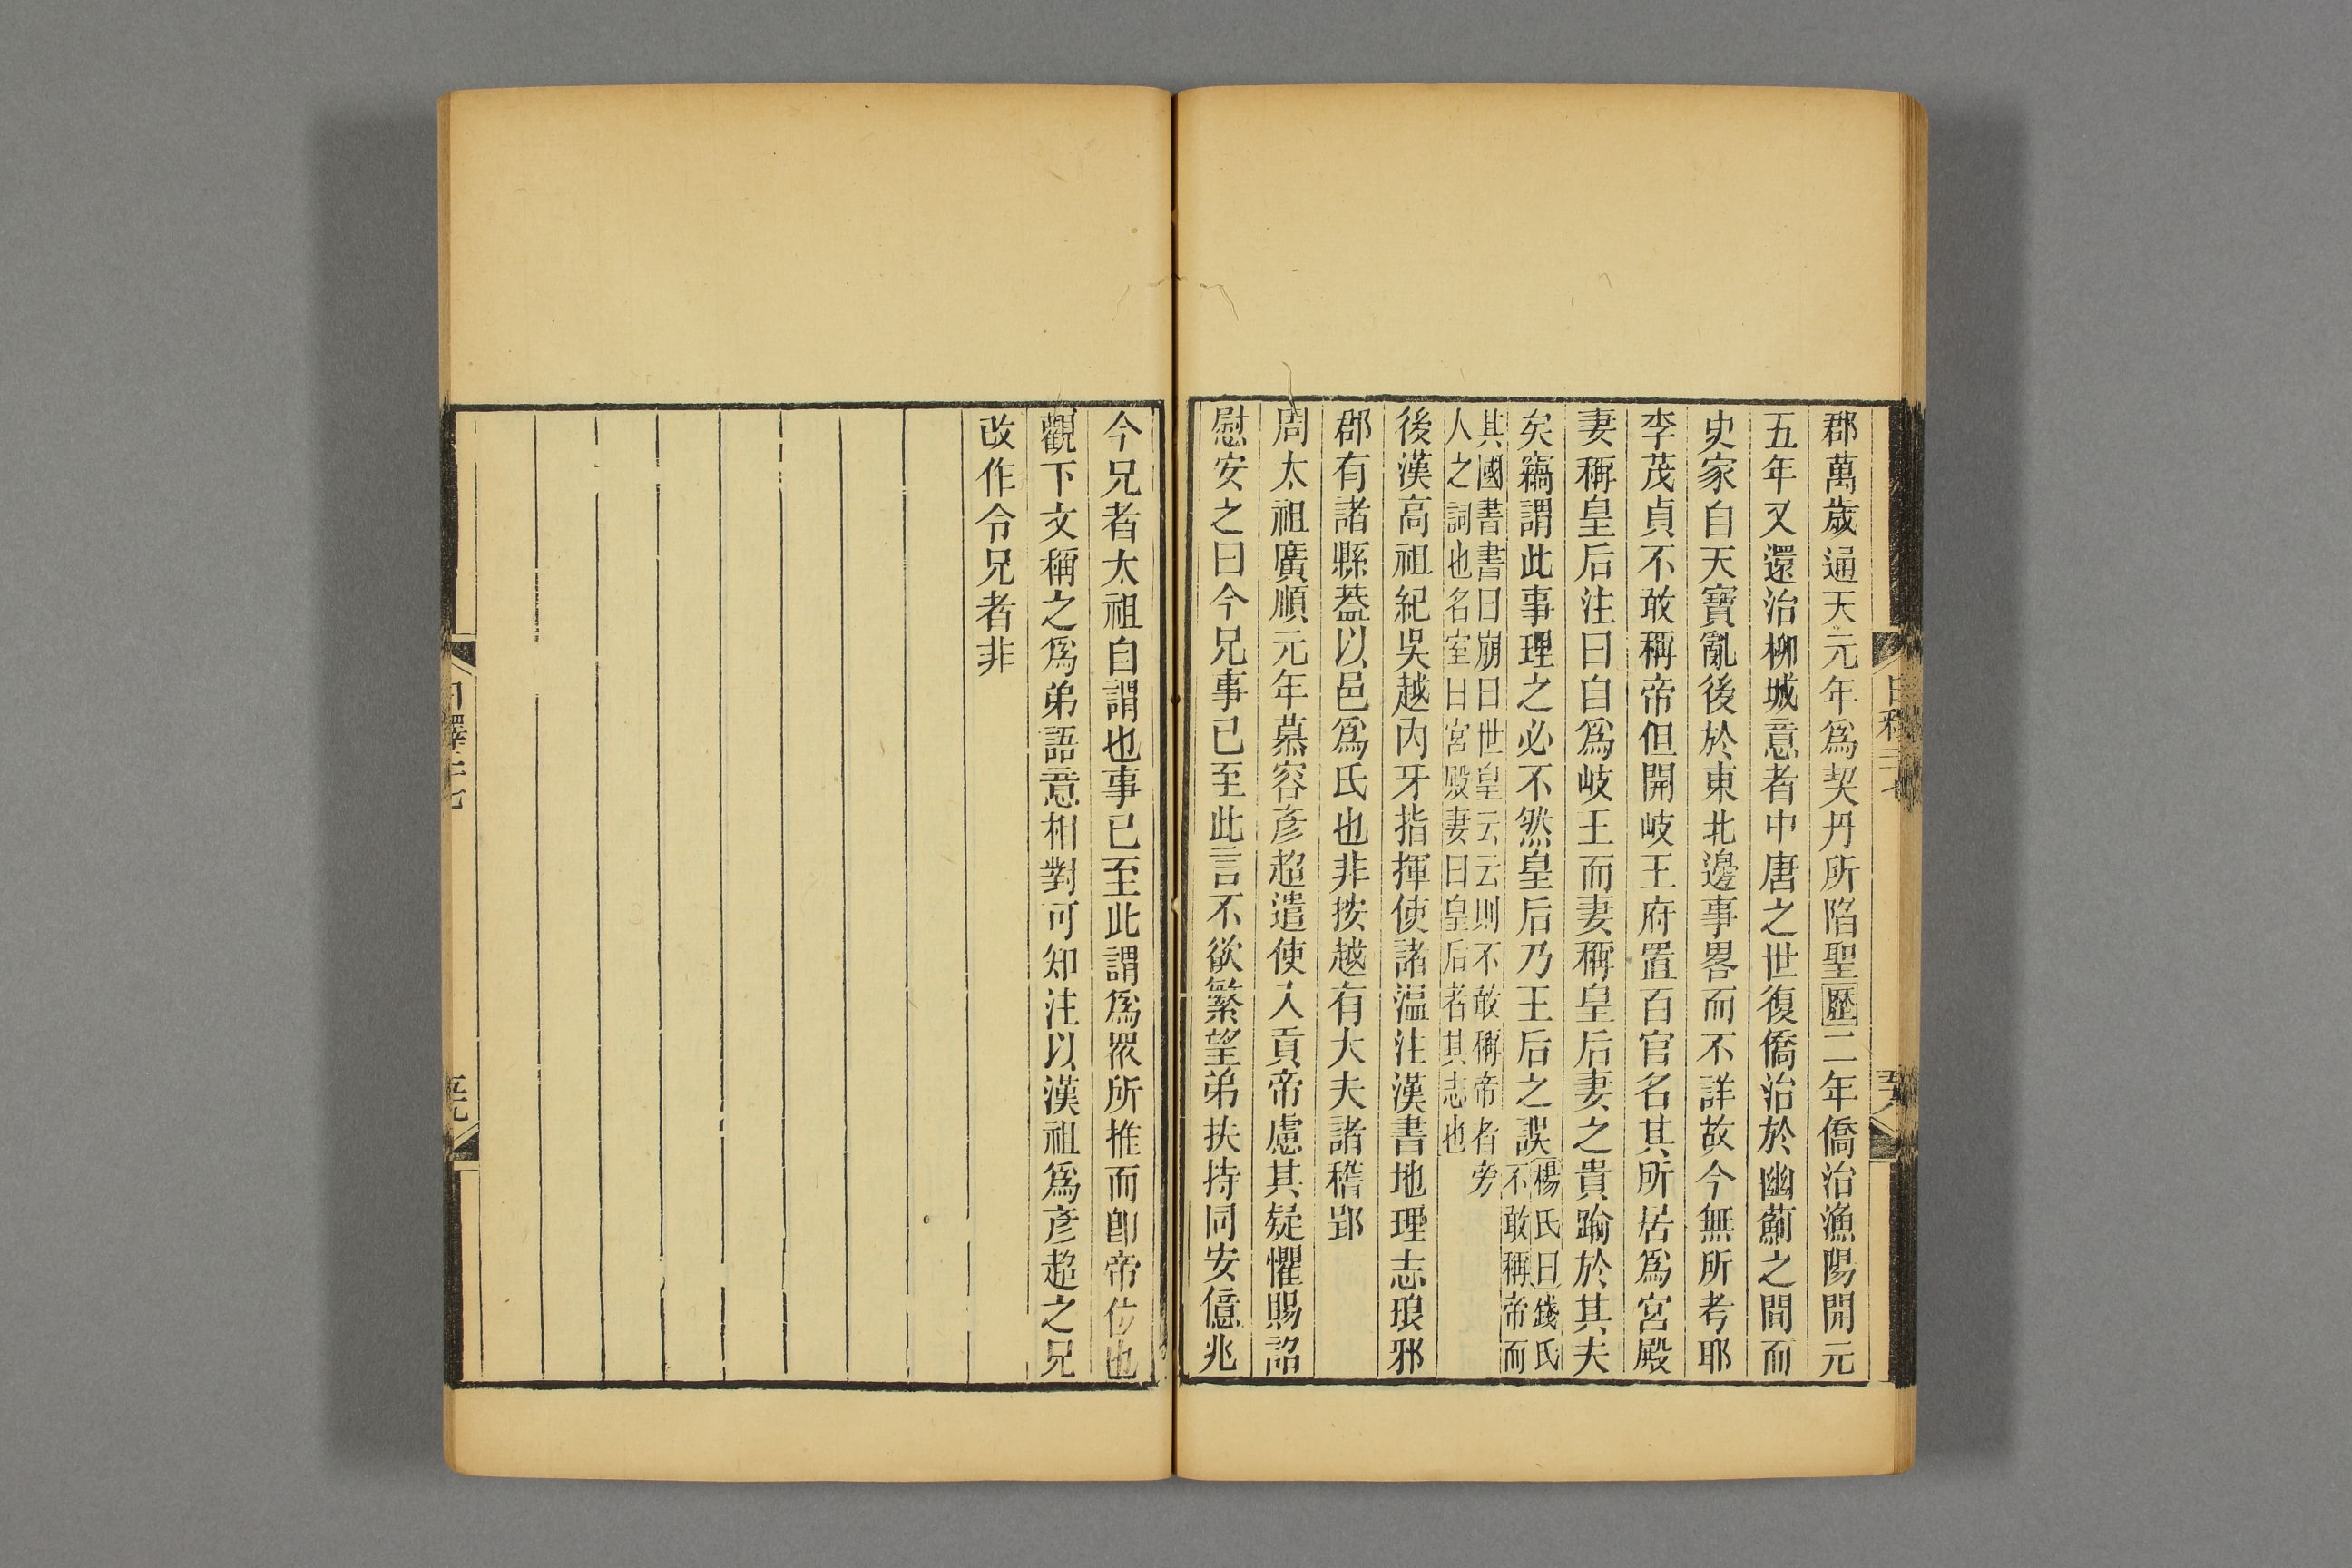 郡萬歲通天元年爲契丹所陷聖歷二年僑治漁陽開元
五年又還治柳城意者中唐之世復僑治於幽薊之間而
史家自天寶亂後於東北邊事畧而不詳故今無所考耶
李茂貞不敢稱帝但開岐王府置百官名其所居爲宮殿
妻稱皇后注曰自爲岐王而妻稱皇后妻之貴踰於其夫
矣竊謂此事理之必不然皇后乃王后之誤
楊氏曰錢氏
不敢稱帝而
其國書書曰崩曰世皇云云則不敢稱帝者旁
人之詞也名室曰宮殿妻曰皇后者其志也
後漢高祖紀吳越內牙指揮使諸溫注漢書地理志琅邪
郡有諸縣葢以邑爲氏也非按越有大夫諸稽郢
周太祖廣順元年慕容彥超遣使入貢帝慮其疑懼賜詔
慰安之曰今兄事已至此言不欲繁望弟扶持同安億兆
今兄者太祖自謂也事已至此謂爲眾所推而卽帝位也
觀下文稱之爲弟語意相對可知注以漢祖爲彥超之兄
改作令兄者非